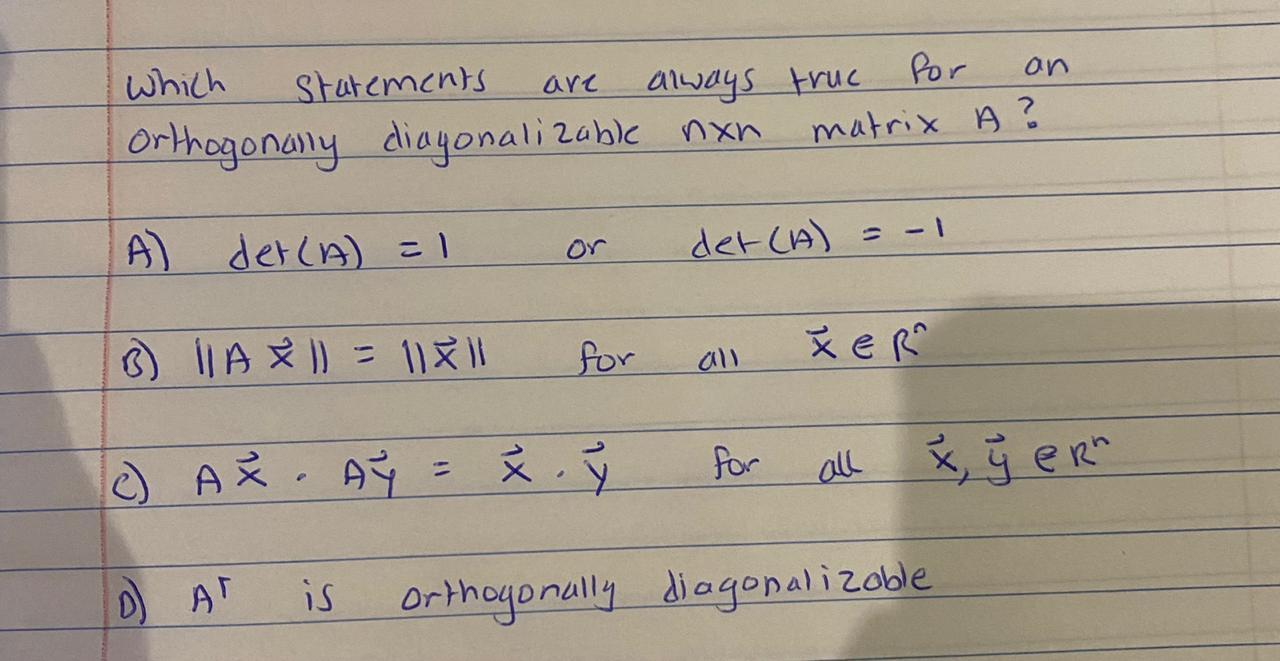 Which statements are always true for an
orthogonally diagonalizable nxn matrix A?
A) det(A) = 1 or det(A) = -1
B) ||A x⃗|| = ||x⃗|| for all x⃗ ∈ Rⁿ
C) A x⃗ . A y⃗ = x⃗ . y⃗ for all x⃗, y⃗ ∈ Rⁿ
D) Aᵀ is orthogonally diagonalizable